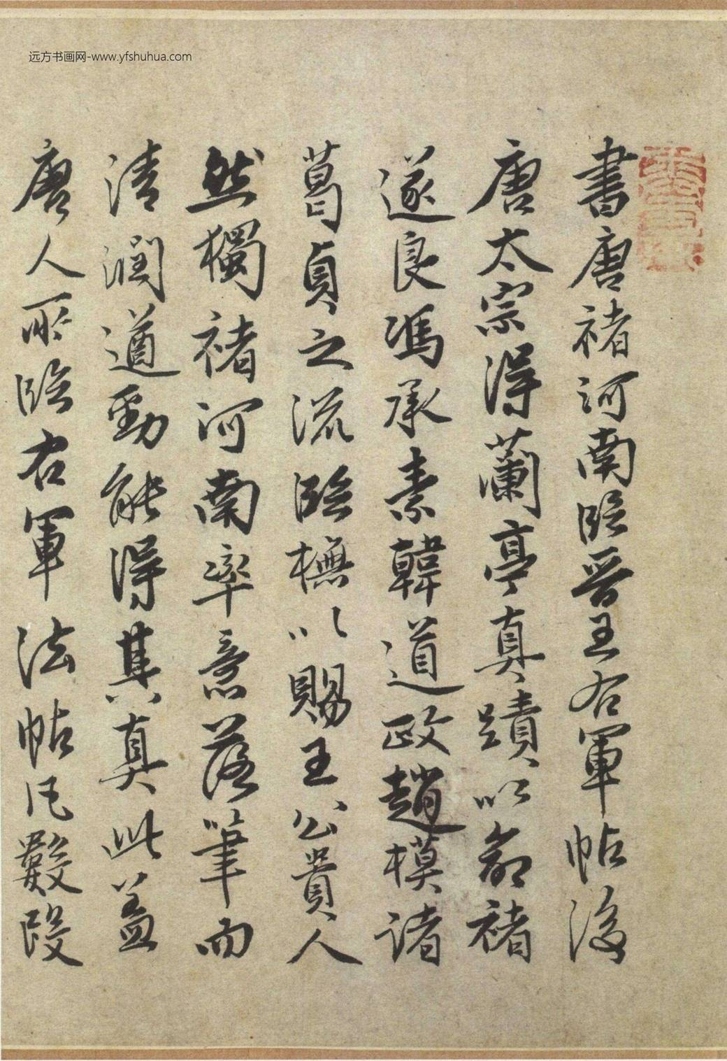 远方书画网-www.yfshuhua.com
書唐褚河南臨晉王右軍帖後
唐太宗得蘭亭真蹟以命褚
遂良馮承素韓道政趙模諸
葛貞之流臨橅以賜王公貴人
然獨褚河南率意落筆而
清潤遒勁能得其真此蓋
唐人所臨右軍法帖凡數段